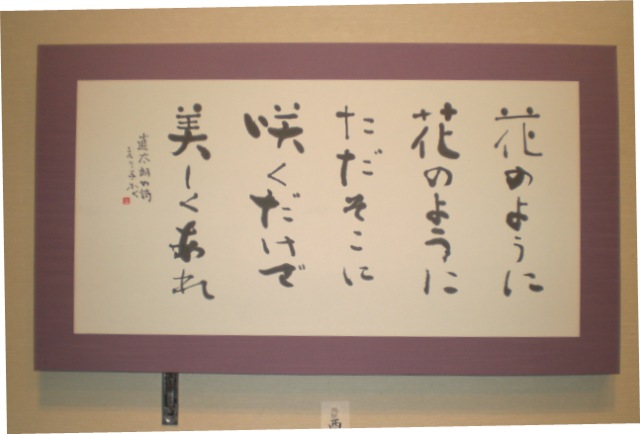 花のように
花のように
ただそこに
咲くだけで
美しくあれ
西